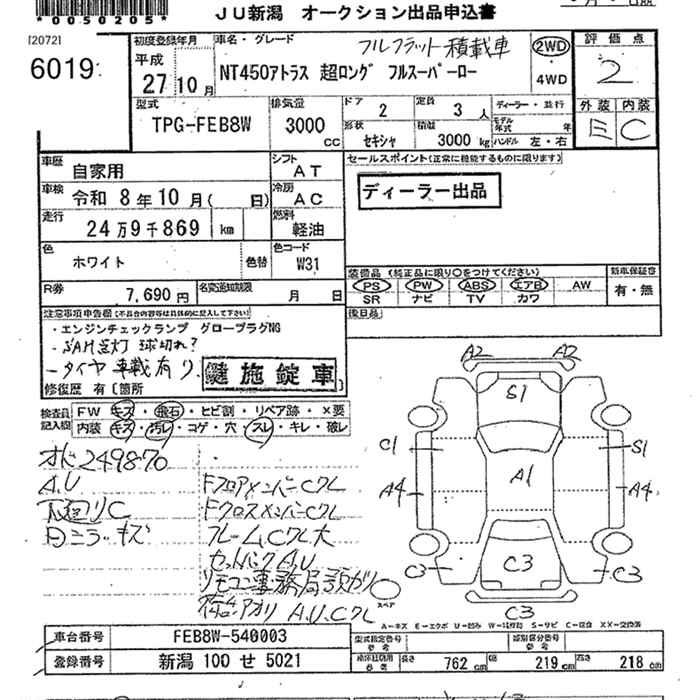 *0050205*
JU新潟 オークション出品申込書
[2072]
6019
初度登録年月
平成
27年10月
車名・グレード
フルフラット 積載車
NT450アトラス 超ロング フルスーパーロー
2WD
4WD
評価点
2
外装 内装
E C
型式
TPG-FEB8W
排気量
3000 CC
ドア 2
定員 3 人
形状 セキシャ
積載 3000 kg
ディーラー・並行
モデル年式 年
ハンドル 左・右
車歴
自家用
シフト
AT
車検
令和 8年10月( 日)
冷房
AC
走行
24万9千869 km
燃料
軽油
色
ホワイト
色替
色コード
W31
R券
7,690円
名変通知期限
月 日
セールスポイント(正常に機能するものに限ります)
ディーラー出品
装備品(純正品に限り○をつけてください)
PS PW ABS エアB AW
SR ナビ TV カワ
新車保証書
有・無
後日品
注意事項申告欄(不具合内容等は具体的に記入して下さい)
・エンジンチェックランプ グロープラグNG
・SAM点灯 球切れ?
・タイヤ 車載有り
鍵施錠車
修復歴 有 [箇所
検査員記入欄
FW キズ・飛石・ヒビ割・リペア跡・×要
内装 キズ・汚レ・コゲ・穴・スレ・キレ・破レ
オド249870
A.U
下廻りC
日ミラーキズ
FフロアメンバーCクレ
FクロスメンバーCクレ
フレームCクレ大
セットバックA.U
リモコン事務局預かり
荷台アオリ A.U.Cクレ
A2 A2
S1
C1 S1
A1
A4 A4
C3
C3 C3
C3
スペア
A-キズ E-エクボ U-凹み W-補修跡 S-サビ C-腐食 XX-交換済
車台番号
FEB8W-540003
登録番号
新潟 100 せ 5021
型式指定番号
参考
類別区分番号
参考
長さ 762 cm
幅 219 cm
高さ 218 cm